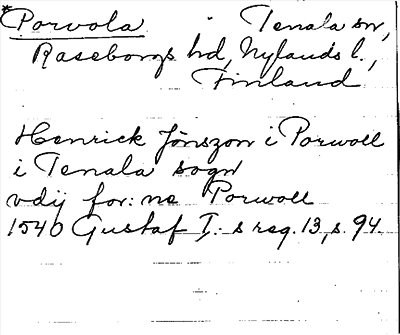 *Porvola . Tenala sn,
Raseborgs hd, Nylands l.,
Finland
Henrick Jönszon i Porwoll
i Tenala sogn
vdij for:ne Porwoll
1540 Gustaf I:s reg. 13, s. 94.